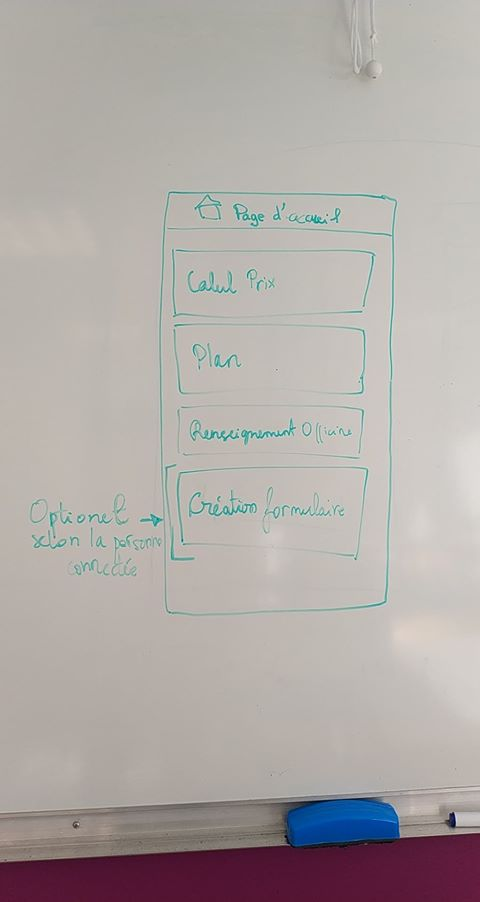 Page d'accueil
Calcul Prix
Plan
Renseignement Officine
Création formulaire
Optionel
selon la personne
connectée